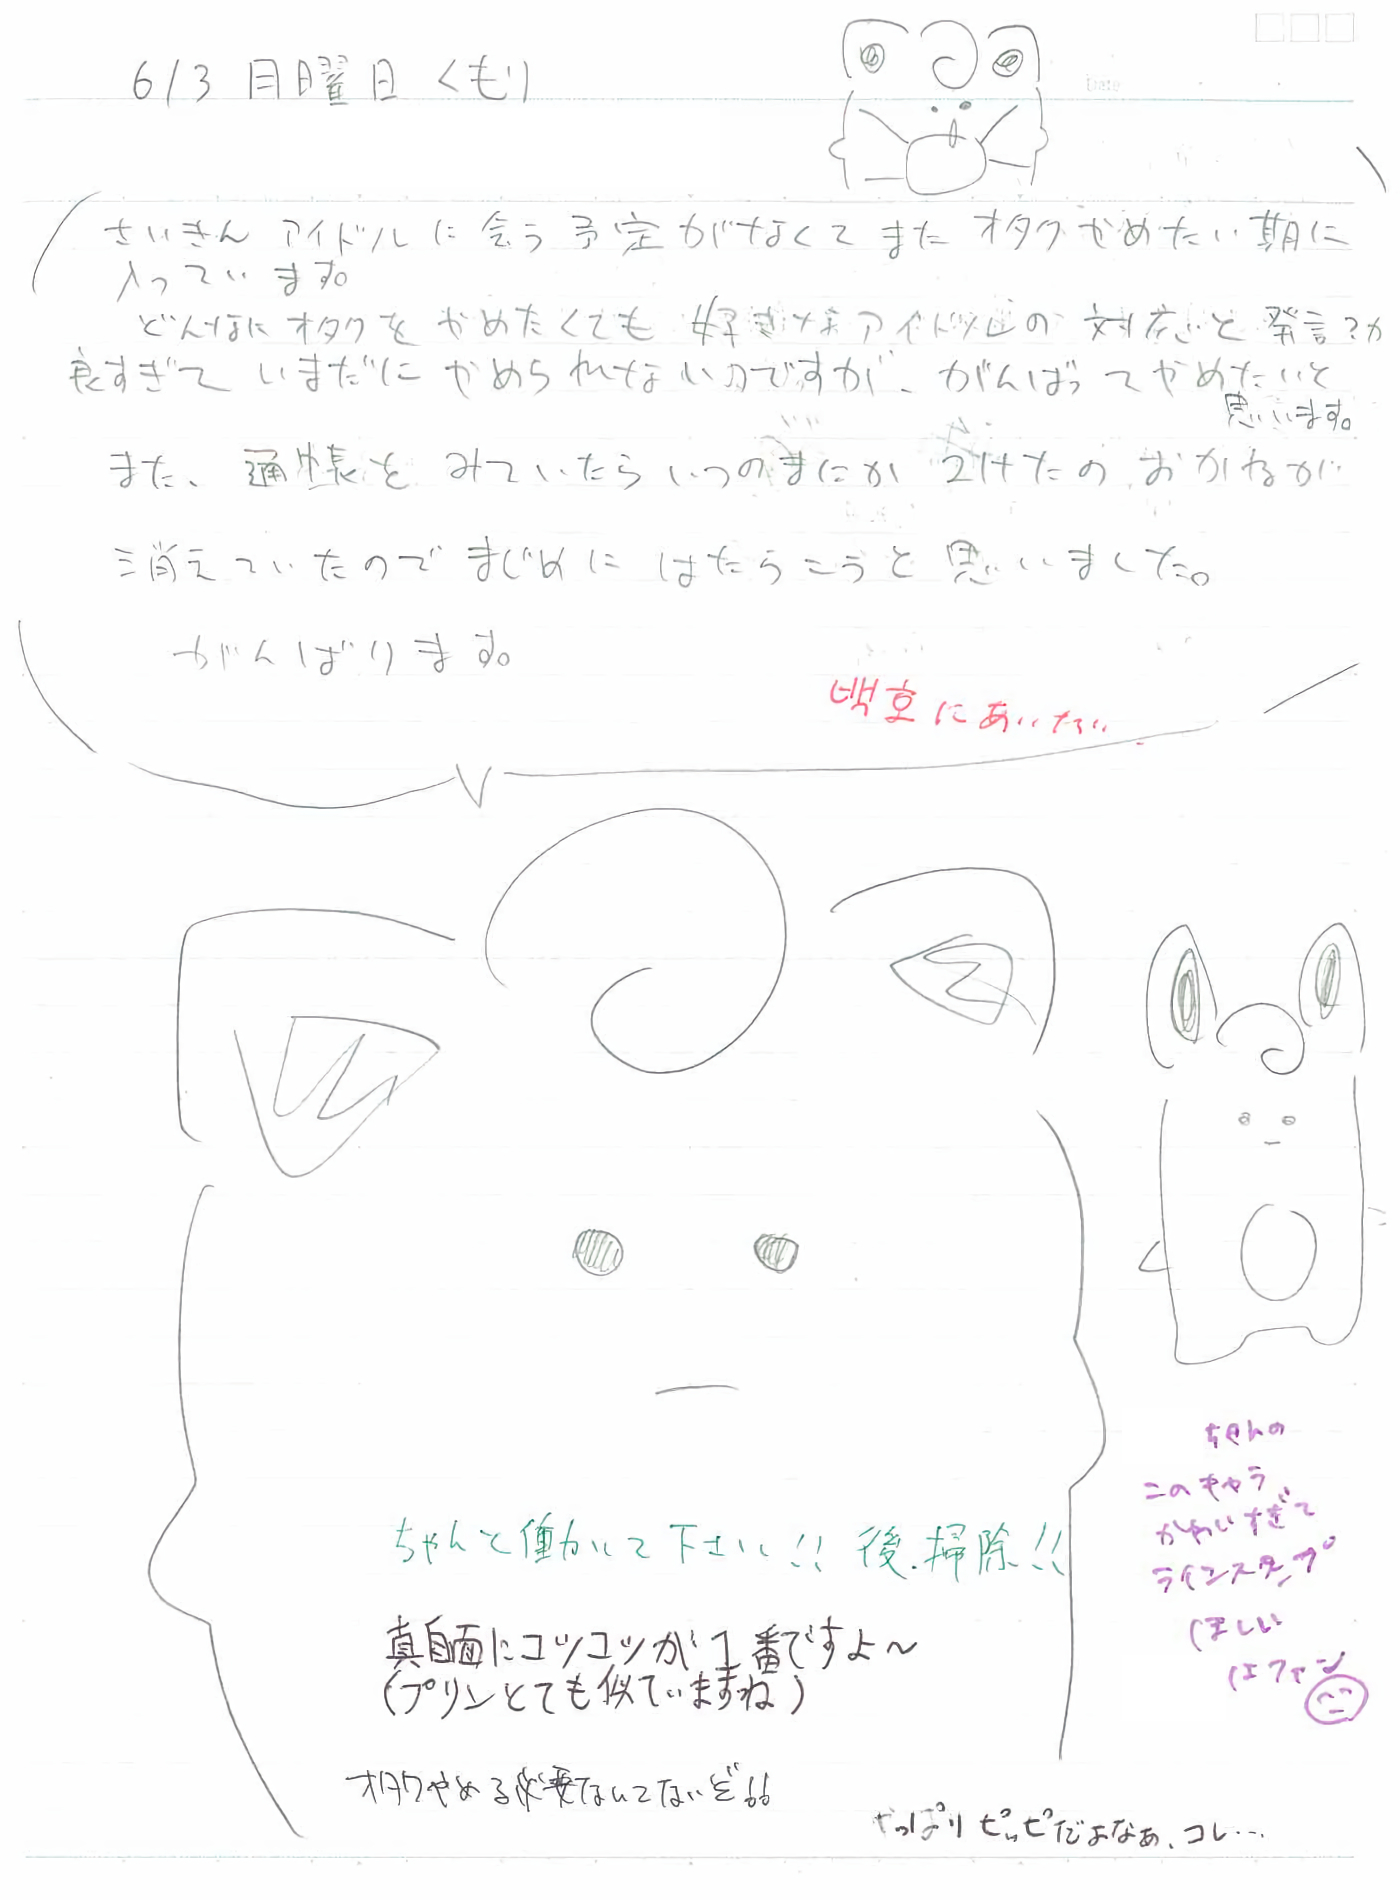 6/3 月曜日 くもり
Date
さいきん アイドルに 会う 予定がなくて また オタク やめたい期に
入っています。
どんなに オタクを やめたくても 好きなアイドルの 対応と 発言?が
良すぎて いまだに やめられないのですが、がんばって やめたいと
思います。
また、通帳を みていたら いつのまにか 2けたの おかねが
消えていたので まじめに はたらこうと 思いました。
がんばります。
백호にあいたい
ちゃんと働いて下さい!! 後、掃除!!
真面目にコツコツが1番ですよ〜
(プリンとても似ていますね)
オタクやめる必要なんてないぞ!!
やっぱりピッピだよなぁ、コレ…
ちゃんの
このキャラ
かわいすぎて
ラインスタンプ
ほしい